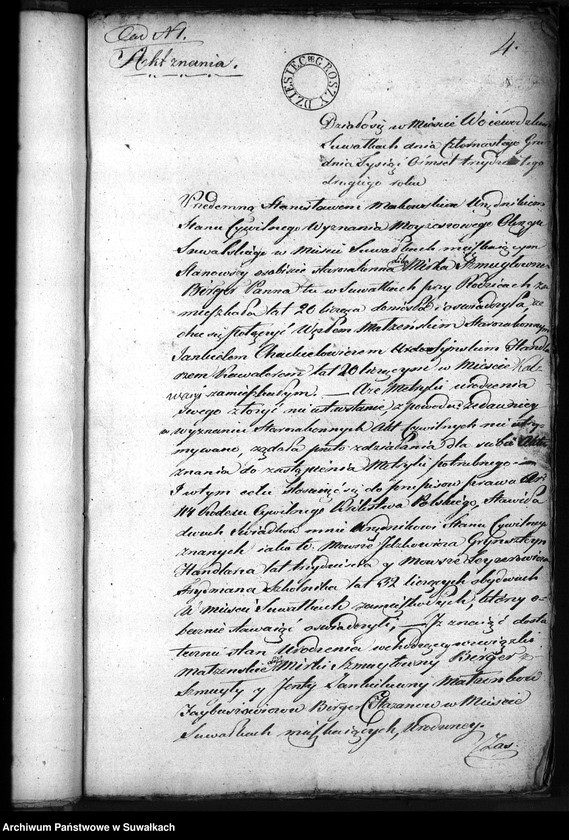 Ad N 1.
Akt znania.
4.
DZIESIĘĆ GROSZY
Działo się w Mieście Woiewodzkim
Suwałkach dnia czternastego Gru
dnia Tysiąc Ośmset trzydziestego
drugiego roku
Przedemną Stanisławem Makowskim Urzędnikiem
Stanu Cywilnego Wyznania Moyżeszowego Okręgu
Suwalskiego w Mieście Suwałkach mieszkaiącym
Stanąwszy osobiście starozakonna Mirka Szmuylowna
Birger Panna tu w Suwałkach przy Rodzicach za
mieszkała lat 20 licząca doniosła i oświadczyła, że
chce się połączyć Węzłem Małżeńskim Starozakonnym
Jankielem Chackielowiczem Handla
rzem Kawalerem lat 20 liczącym w Mieście Kal
waryi zamieszkałym. — A że Metryki urodzenia
swego złożyć nie iest w stanie z powodu że dawniey
w wyznaniu Starozakonnych Akt Cywilnych nie utrzy
mywano, żądała przeto zdziałania dla siebie Aktu
znania do zastąpienia Metryki potrzebnego —
I w tym celu stosuiąc się do przepisow prawa Art.
144 Kodexu Cywilnego Królestwa Polskiego, Stawiła
dwoch Świadkow mnie Urzędnikowi Stanu Cywilnego
znanych iako to Mowszę Jckowicza Grynszteyn
Handlarza lat trzydzieści y Mowszę Leyzerowicza
Frydmana Szkolnika lat 32 liczących obydwoch
w mieście Suwałkach zamieszkałych, ktorzy o-
becnie stawaiąc oświadczyli, — Jż znaiąc dosko
stan Urodzenia wchodzącey w związki
małżenskie Mirki Szmuylowny Birger z
Szmuyły y Jenty Jankielowny Małżonkow
Birger w Mieście
Suwałkach mieszkaiących, Urodzoney.
Zas.
Archiwum Państwowe w Suwałkach